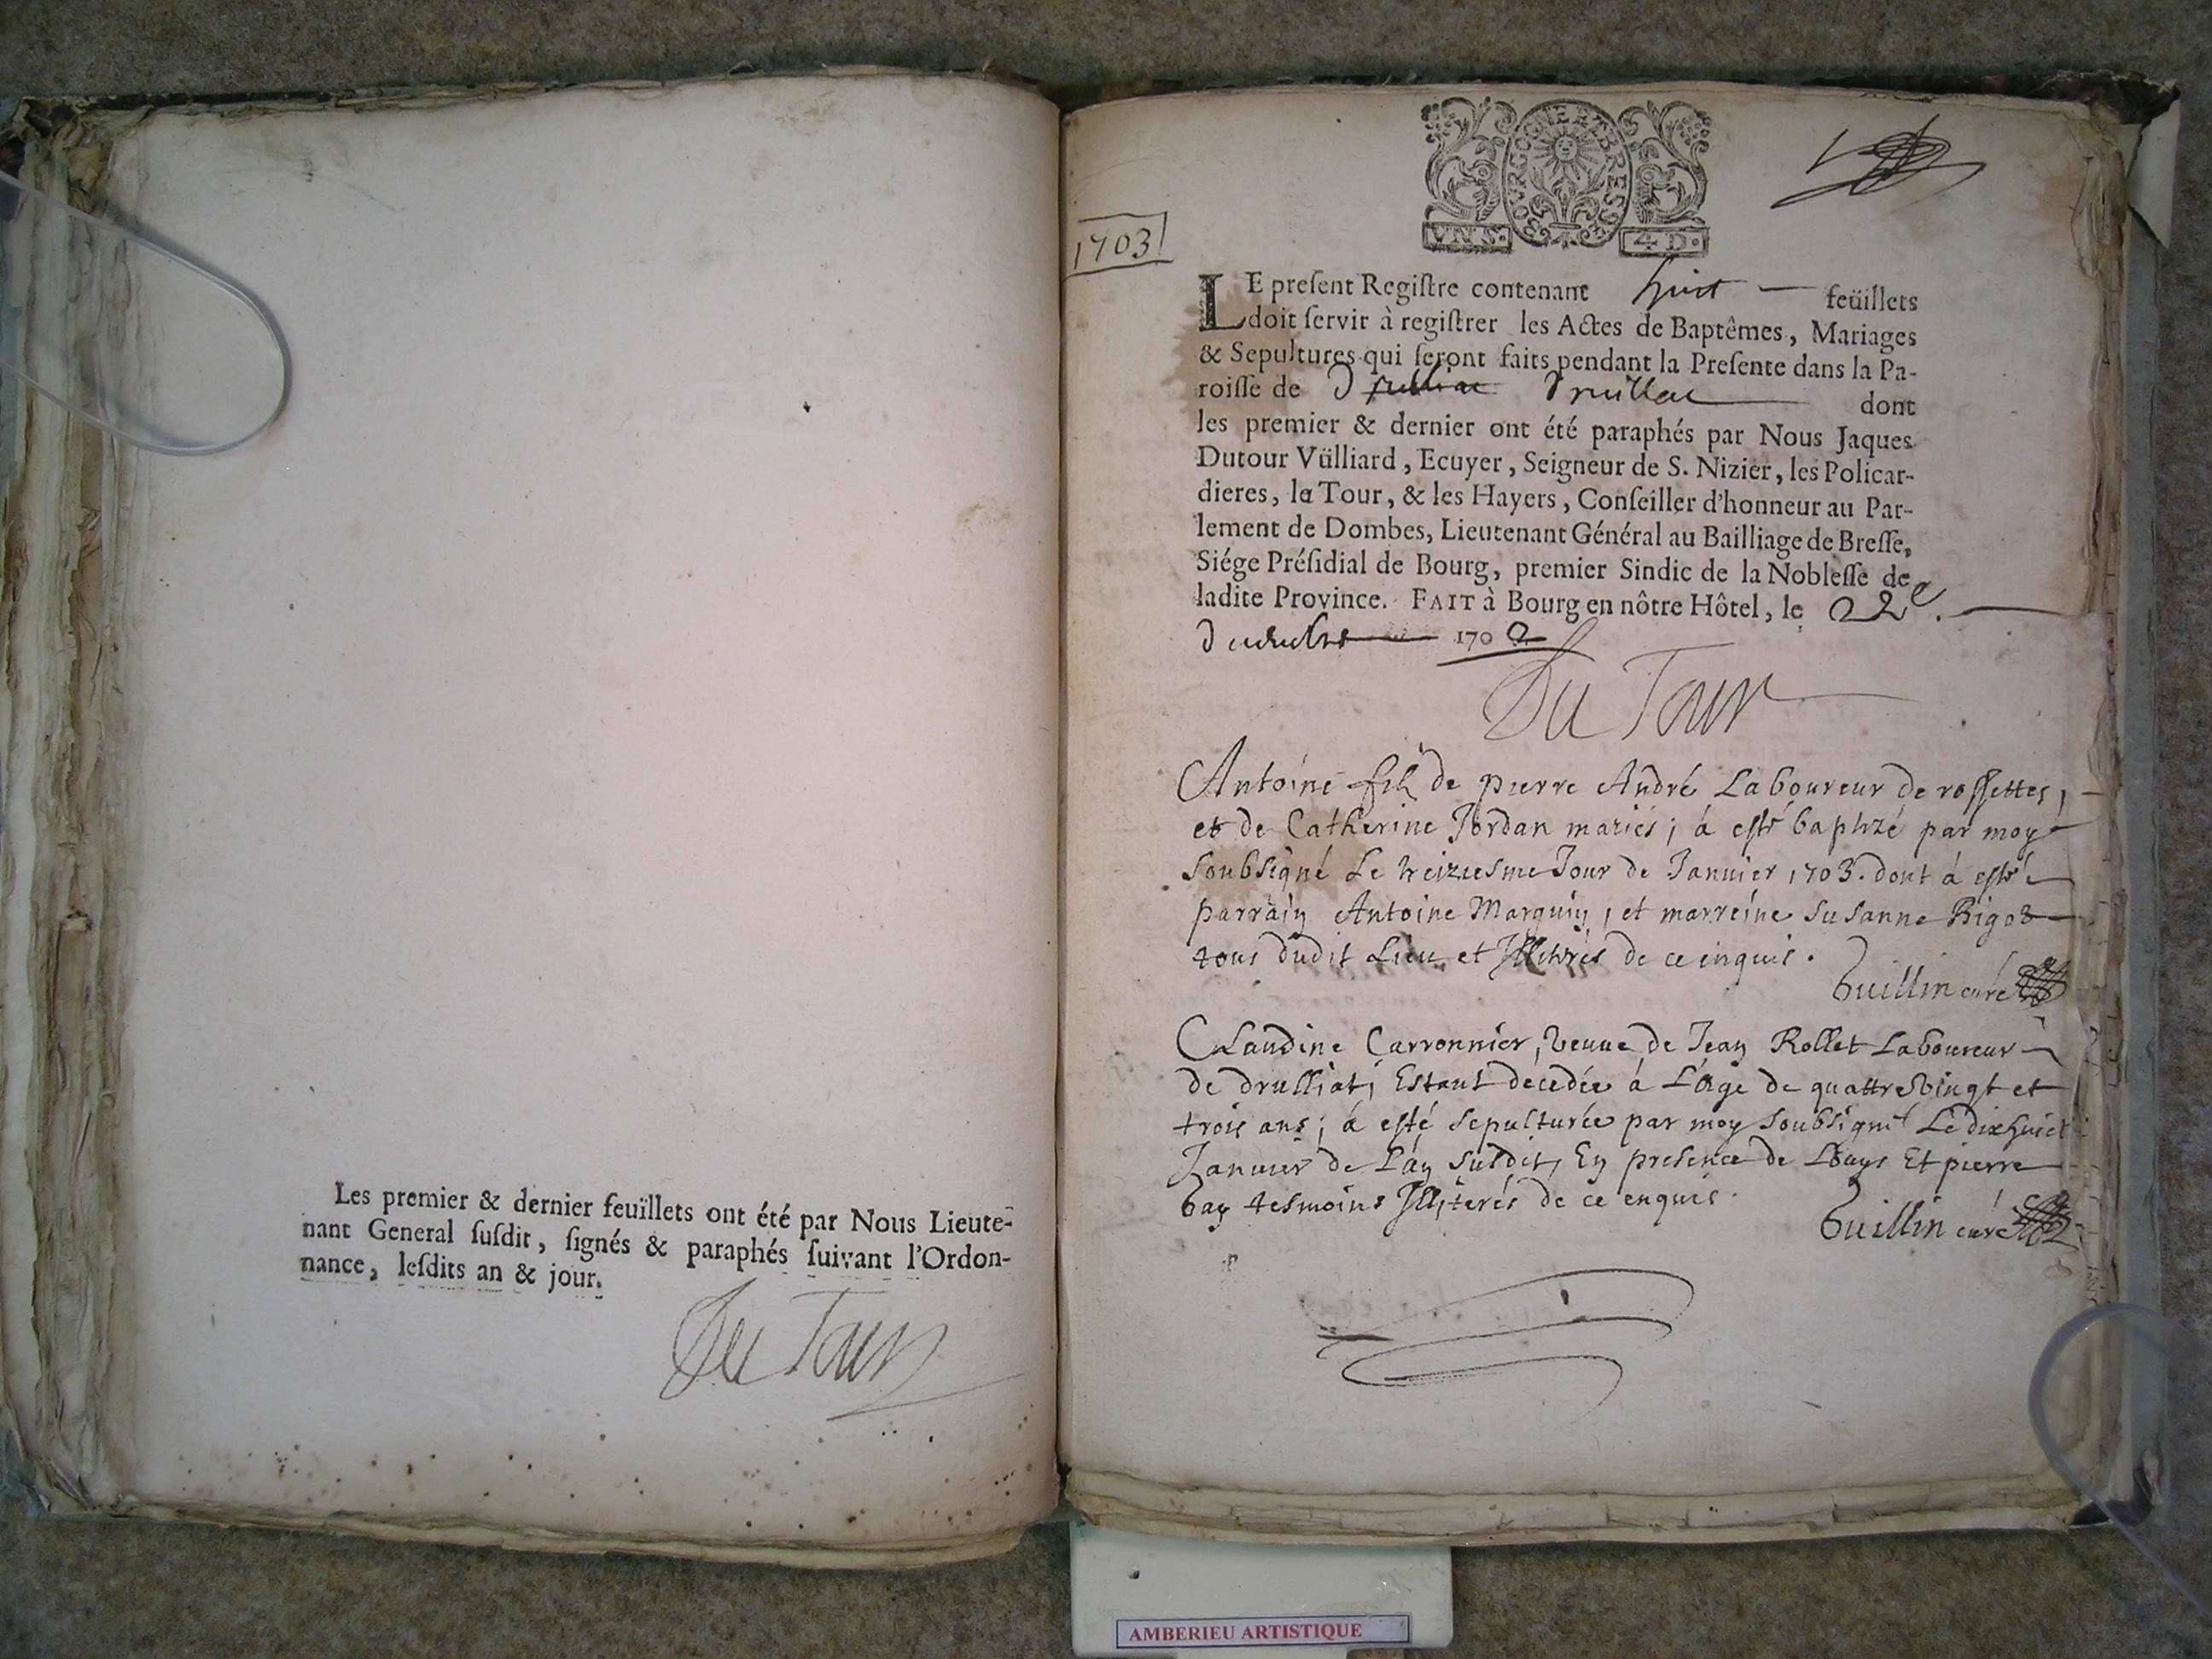 Les premier & dernier feuillets ont été par Nous Lieute-
nant General susdit, signés & paraphés suivant l'Ordon-
nance, lesdits an & jour.
Du Tour
BOURGOGNE ET BRESSE
VN S. 4 D.
1703
LE present Registre contenant huict feüillets
doit servir à registrer les Actes de Baptêmes, Mariages
& Sepultures qui seront faits pendant la Presente dans la Pa-
roisse de Druillat dont
les premier & dernier ont été paraphés par Nous Jaques
Dutour Vülliard, Ecuyer, Seigneur de S. Nizier, les Policar-
dieres, la Tour, & les Hayers, Conseiller d'honneur au Par-
lement de Dombes, Lieutenant Général au Bailliage de Bresse,
Siége Présidial de Bourg, premier Sindic de la Noblesse de
ladite Province. FAIT à Bourg en nôtre Hôtel, le 22e.
decembre 1702
Du Tour
Antoine fils de pierre André Laboureur de rossettes,
et de Catherine Jordan mariés; à esté baptizé par moy
soubsigné Le treiziesme Jour de Januier 1703. dont à esté
parrain Antoine Marguin, et marreine Susanne Bigot
tous dudit Lieu et Illitrés de ce inquis.
Guillin curé
Claudine Carronnier, veuue de Jean Rollet Laboureur
de drulliat; Estant décedée à L'age de quattre vingt et
trois ans; à esté sepulturée par moy soubsigné Le dixhuict
Januier de L'an susdit, En presence de Louys Et pierre
bay tesmoins Illiterés de ce enquis.
Guillin curé
AMBERIEU ARTISTIQUE